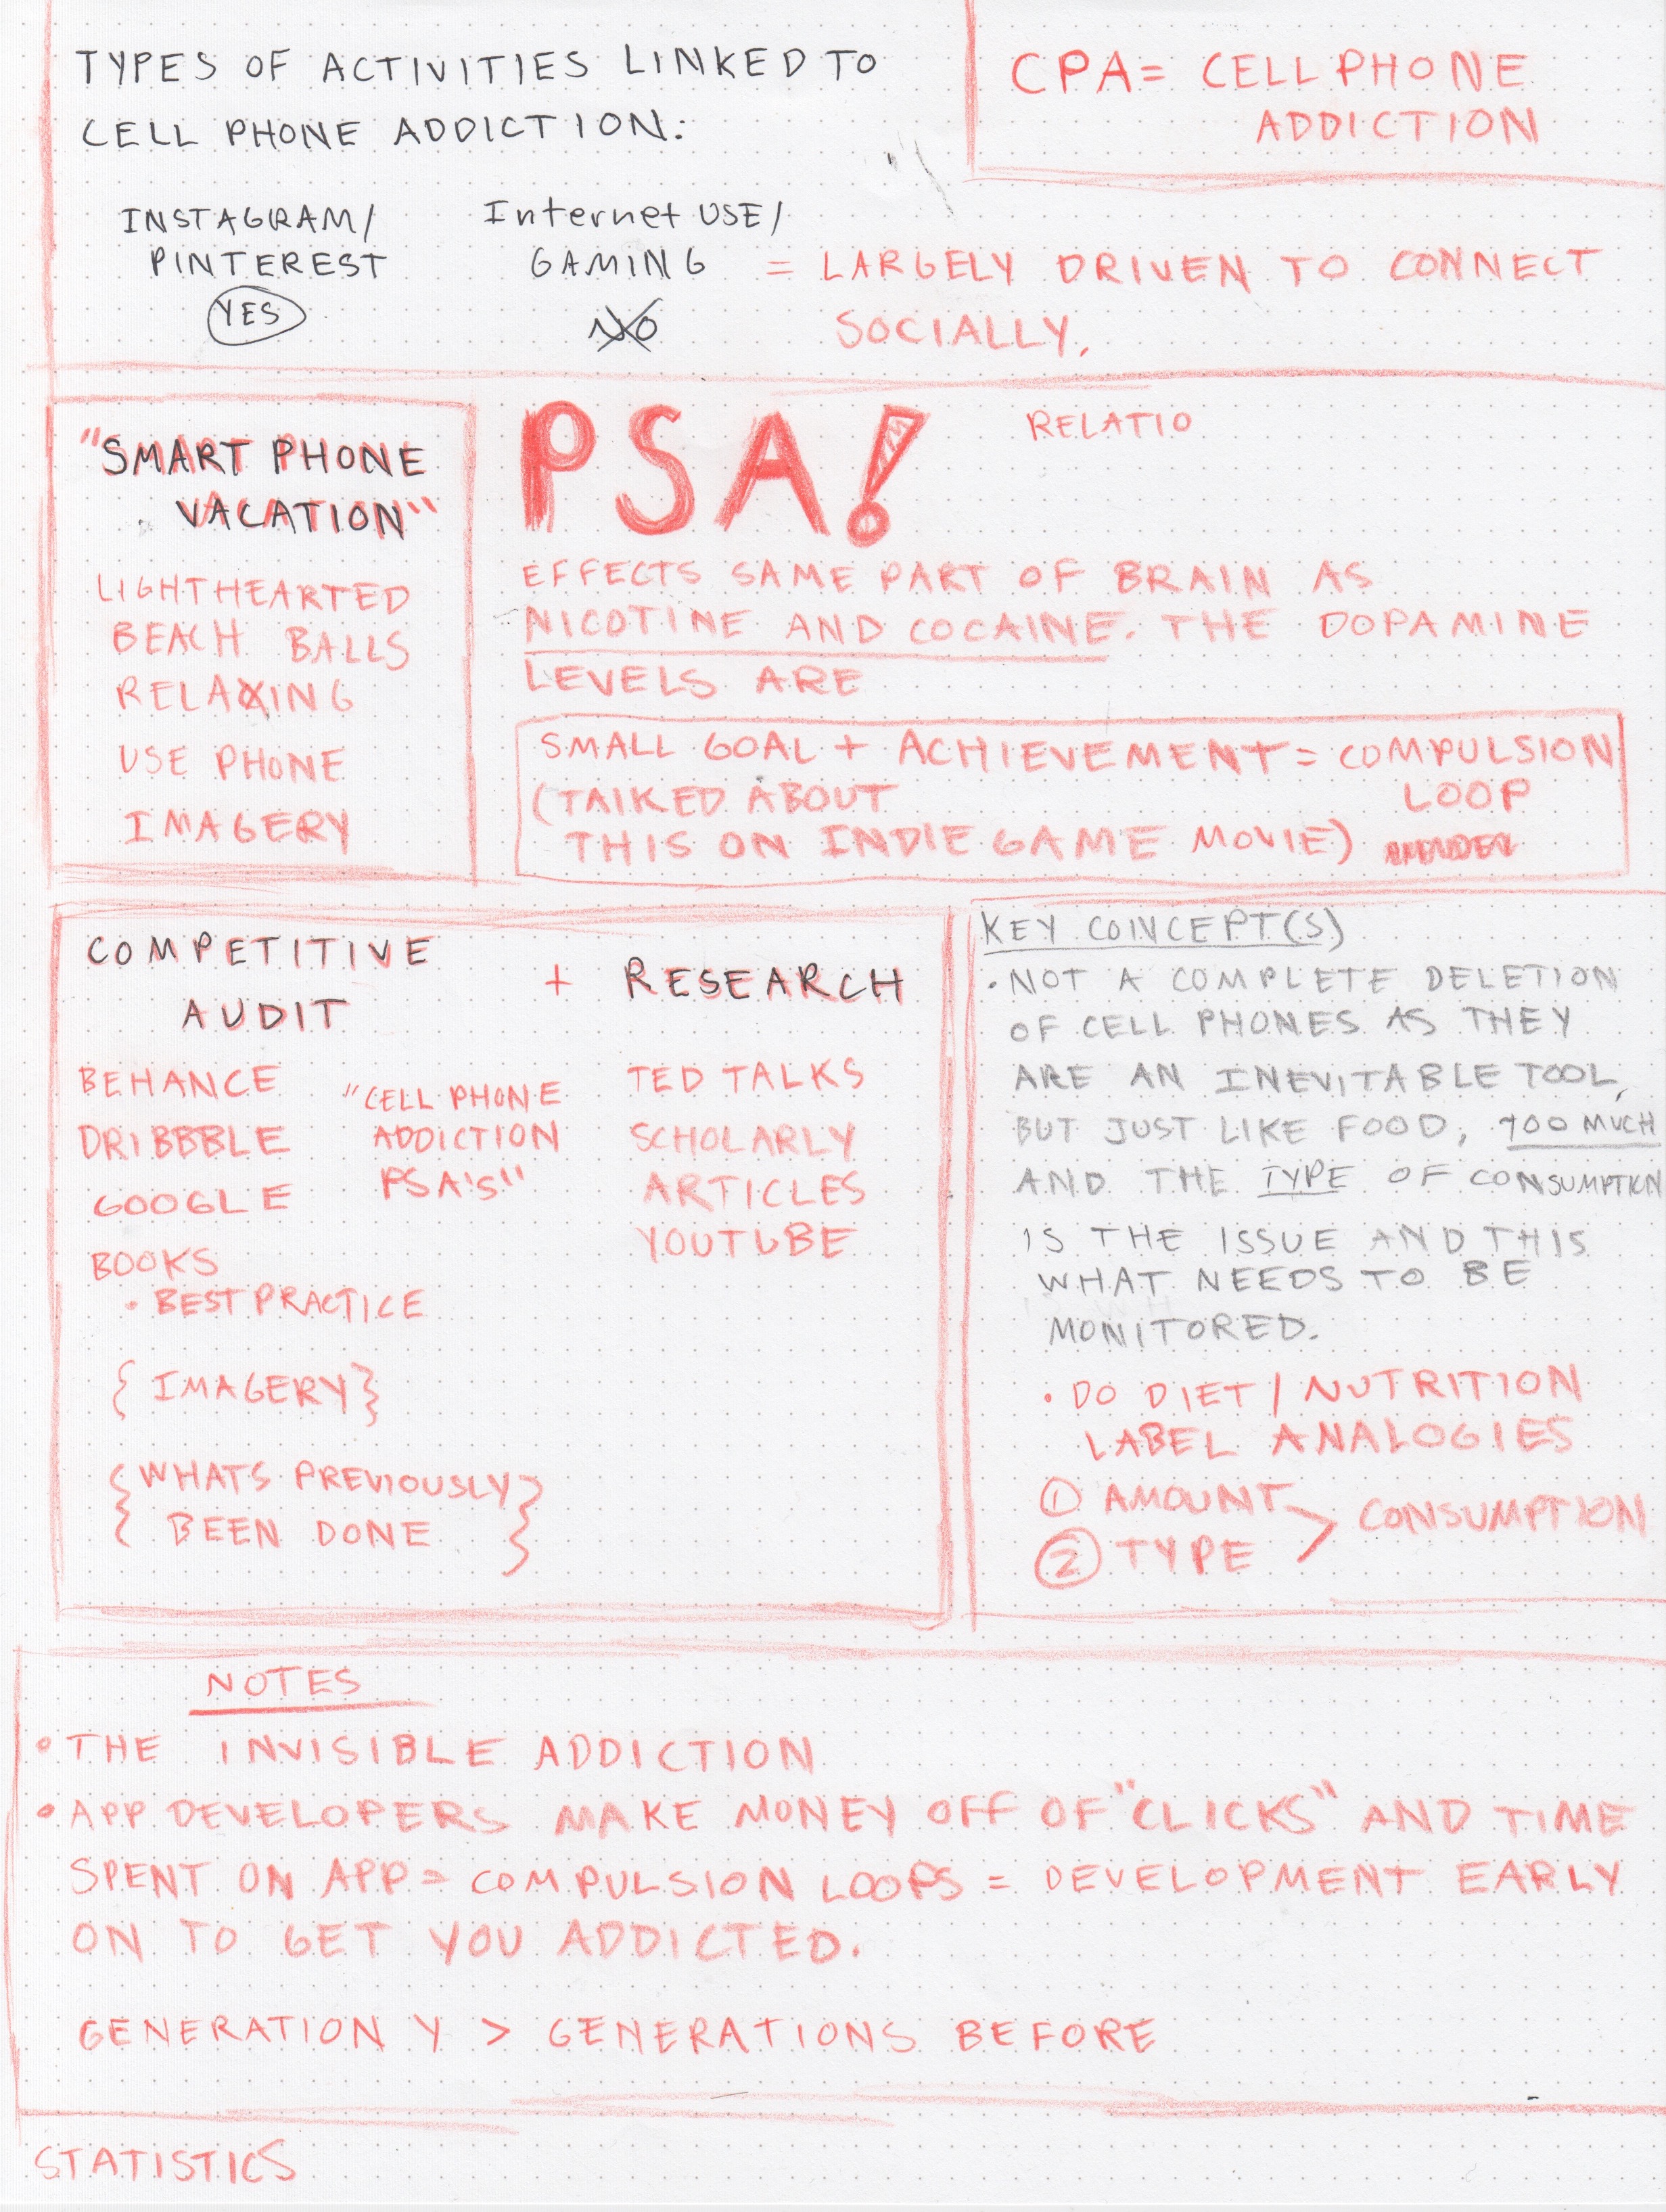 TYPES OF ACTIVITIES LINKED TO
CELL PHONE ADDICTION:
CPA = CELL PHONE
ADDICTION
INSTAGRAM/
PINTEREST
YES
Internet USE/
GAMING
NO
= LARGELY DRIVEN TO CONNECT
SOCIALLY.
"SMART PHONE
VACATION"
LIGHTHEARTED
BEACH BALLS
RELAXING
USE PHONE
IMAGERY
PSA!
RELATIO
EFFECTS SAME PART OF BRAIN AS
NICOTINE AND COCAINE. THE DOPAMINE
LEVELS ARE
SMALL GOAL + ACHIEVEMENT = COMPULSION
LOOP
(TALKED ABOUT
THIS ON INDIE GAME MOVIE)
COMPETITIVE
AUDIT
+ RESEARCH
BEHANCE
DRIBBBLE
GOOGLE
BOOKS
• BEST PRACTICE
"CELL PHONE
ADDICTION
PSA'S"
TED TALKS
SCHOLARLY
ARTICLES
YOUTUBE
{ IMAGERY }
{ WHATS PREVIOUSLY
BEEN DONE }
KEY CONCEPT(S)
• NOT A COMPLETE DELETION
OF CELL PHONES AS THEY
ARE AN INEVITABLE TOOL,
BUT JUST LIKE FOOD, TOO MUCH
AND THE TYPE OF CONSUMPTION
IS THE ISSUE AND THIS
WHAT NEEDS TO BE
MONITORED.
• DO DIET / NUTRITION
LABEL ANALOGIES
① AMOUNT
② TYPE
> CONSUMPTION
NOTES
• THE INVISIBLE ADDICTION
• APP DEVELOPERS MAKE MONEY OFF OF "CLICKS" AND TIME
SPENT ON APP = COMPULSION LOOPS = DEVELOPMENT EARLY
ON TO GET YOU ADDICTED.
GENERATION Y > GENERATIONS BEFORE
STATISTICS